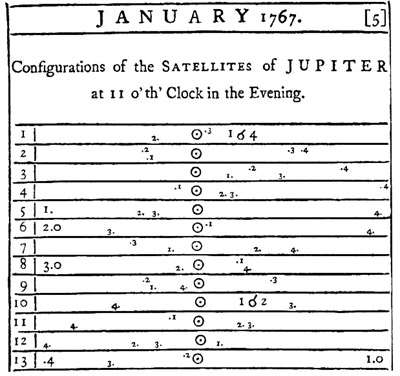 JANUARY 1767. [5]
Configurations of the SATELLITES of JUPITER
at 11 o'th' Clock in the Evening.
1 2. ⊙ ·3 1 ☌ 4
2 ·2 ·1 ⊙ ·3 ·4
3 ⊙ 1. ·2 3. ·4
4 ·1 ⊙ 2. 3. ·4
5 1. 2. 3. ⊙ 4.
6 2.0 3. ⊙ ·1 4.
7 ·3 1. ⊙ 2. 4.
8 3.0 2. ⊙ ·1 4.
9 ·2 1. 4. ⊙ ·3
10 4. ⊙ 1 ☌ 2 3.
11 4. ·1 ⊙ 2. 3.
12 4. 2. 3. ⊙ 1.
13 ·4 3. ·2 ⊙ 1.0